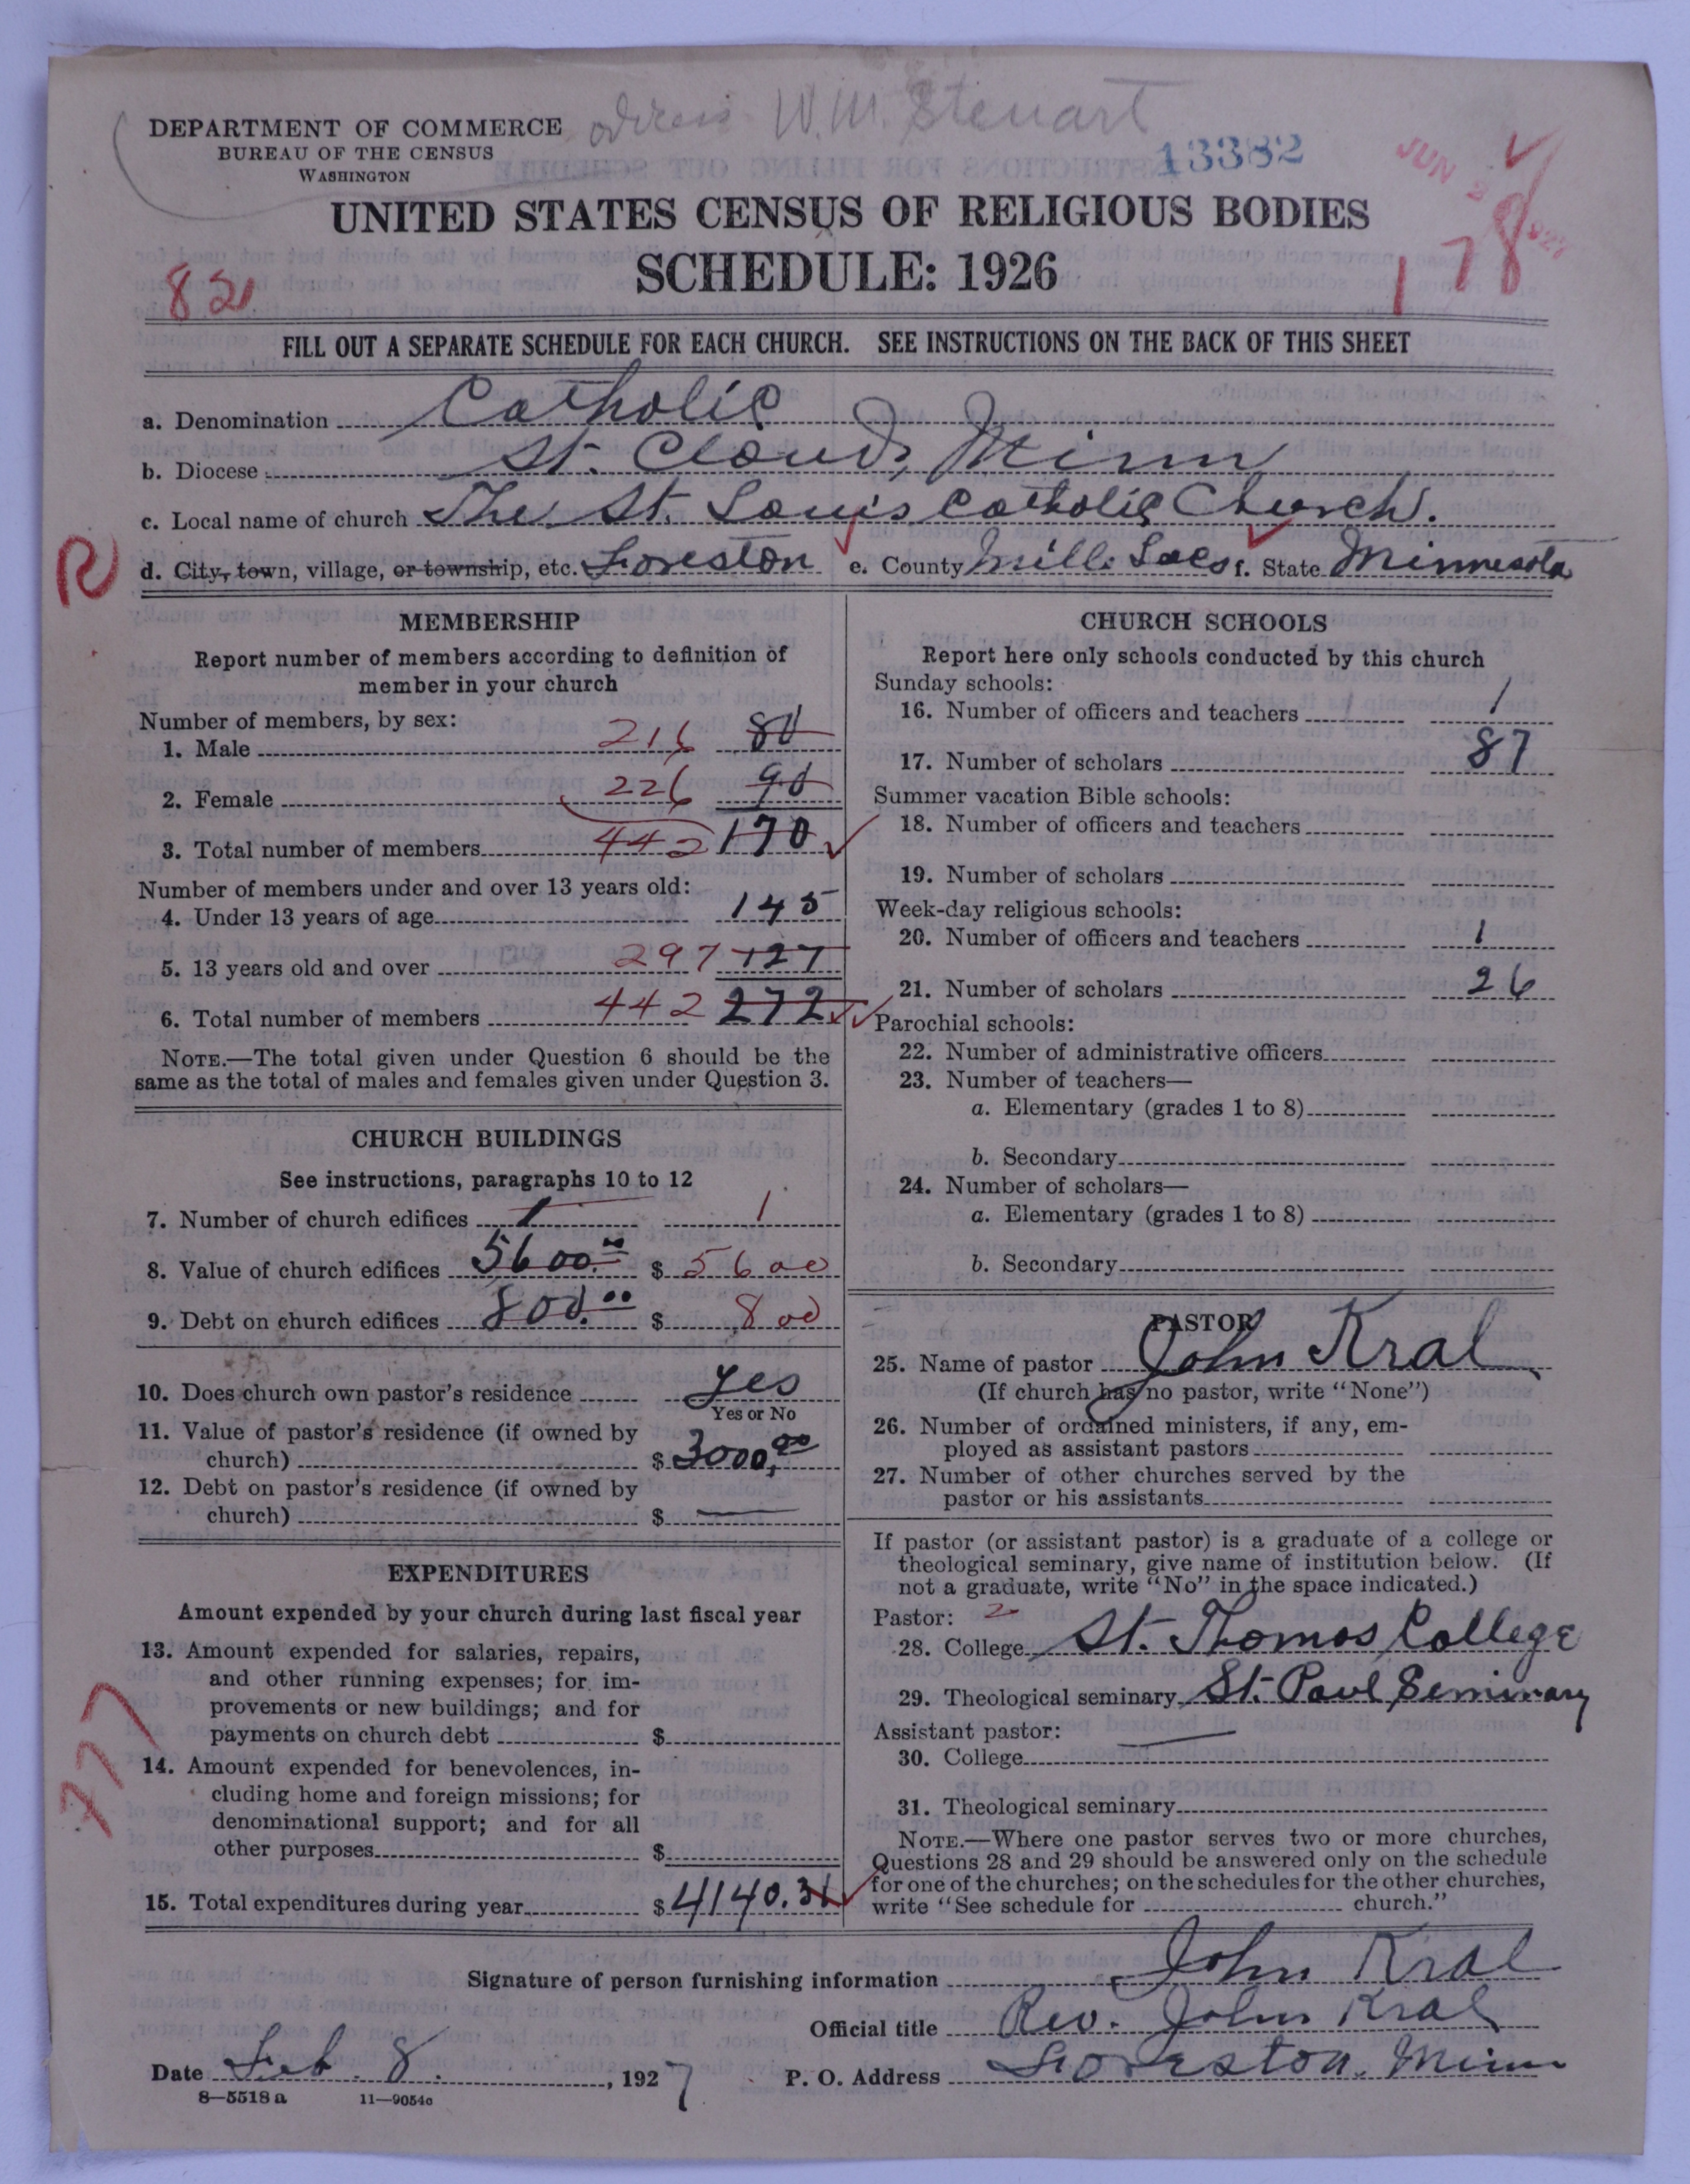 address W. M. Steuart
DEPARTMENT OF COMMERCE
BUREAU OF THE CENSUS
WASHINGTON
13382
JUN 2 1927
UNITED STATES CENSUS OF RELIGIOUS BODIES
SCHEDULE: 1926
82
178
FILL OUT A SEPARATE SCHEDULE FOR EACH CHURCH. SEE INSTRUCTIONS ON THE BACK OF THIS SHEET
a. Denomination Catholic
b. Diocese St. Cloud, Minn
c. Local name of church The St. Louis Catholic Church.
R
d. City, town, village, or township, etc. Foreston e. County Mille Lacs f. State Minnesota
MEMBERSHIP
Report number of members according to definition of
member in your church
Number of members, by sex:
1. Male 216 80
2. Female 226 90
3. Total number of members 442 170
Number of members under and over 13 years old:
4. Under 13 years of age 145
5. 13 years old and over 297 127
6. Total number of members 442 272
NOTE.—The total given under Question 6 should be the
same as the total of males and females given under Question 3.
CHURCH BUILDINGS
See instructions, paragraphs 10 to 12
7. Number of church edifices 1 1
8. Value of church edifices 5600.00 $ 5600
9. Debt on church edifices 800.00 $ 800
10. Does church own pastor's residence yes
Yes or No
11. Value of pastor's residence (if owned by
church) $ 3000,00
12. Debt on pastor's residence (if owned by
church) $ —
EXPENDITURES
Amount expended by your church during last fiscal year
13. Amount expended for salaries, repairs,
and other running expenses; for im-
provements or new buildings; and for
payments on church debt $
777
14. Amount expended for benevolences, in-
cluding home and foreign missions; for
denominational support; and for all
other purposes $
15. Total expenditures during year $ 4140.31
CHURCH SCHOOLS
Report here only schools conducted by this church
Sunday schools:
16. Number of officers and teachers 1
17. Number of scholars 87
Summer vacation Bible schools:
18. Number of officers and teachers
19. Number of scholars
Week-day religious schools:
20. Number of officers and teachers 1
21. Number of scholars 26
Parochial schools:
22. Number of administrative officers
23. Number of teachers—
a. Elementary (grades 1 to 8)
b. Secondary
24. Number of scholars—
a. Elementary (grades 1 to 8)
b. Secondary
PASTOR
25. Name of pastor John Kral
(If church has no pastor, write "None")
26. Number of ordained ministers, if any, em-
ployed as assistant pastors
27. Number of other churches served by the
pastor or his assistants
If pastor (or assistant pastor) is a graduate of a college or
theological seminary, give name of institution below. (If
not a graduate, write "No" in the space indicated.)
Pastor: 2
28. College St. Thomas College
29. Theological seminary St. Paul Seminary
Assistant pastor: —
30. College
31. Theological seminary
NOTE.—Where one pastor serves two or more churches,
Questions 28 and 29 should be answered only on the schedule
for one of the churches; on the schedules for the other churches,
write "See schedule for church."
Signature of person furnishing information John Kral
Official title Rev. John Kral
Date Feb. 8. , 1927 P. O. Address Foreston, Minn
8—5518 a 11—9054c